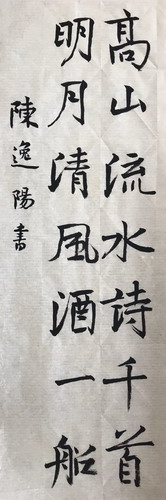 高山流水詩千首
明月清風酒一船
陳逸陽書